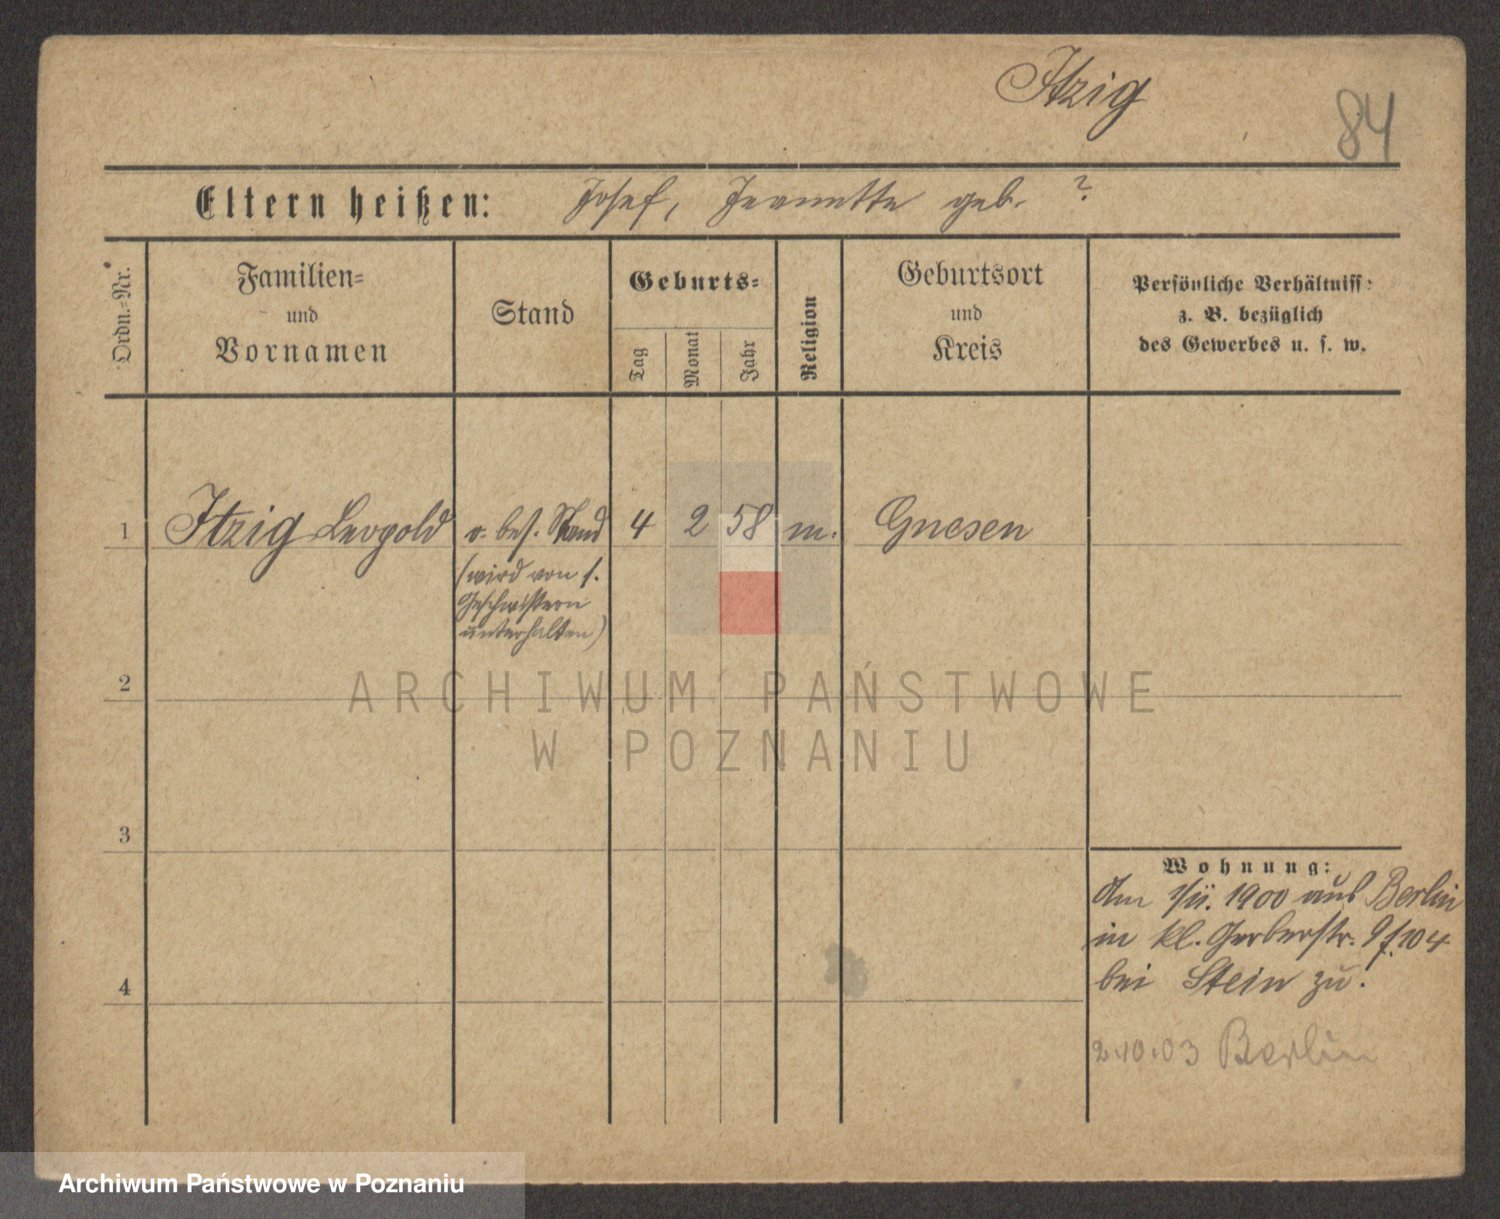 Itzig
84
Eltern heißen: Josef, Jeannette geb. ?
Ordn.-Nr.
Familien-
und
Vornamen
Stand
Geburts-
Tag
Monat
Jahr
Religion
Geburtsort
und
Kreis
Persönliche Verhältniss:
z. B. bezüglich
des Gewerbes u. s. w.
1 Itzig Leopold o. bes. Stand 4 2 58 m. Gnesen
(wird von s.
Geschwistern
unterhalten)
2
ARCHIWUM PAŃSTWOWE
W POZNANIU
3
Wohnung:
Am 1900 aus Berlin
in kl. Gerberstr. 9
4
bei Stein zu.
2.10.03 Berlin
Archiwum Państwowe w Poznaniu